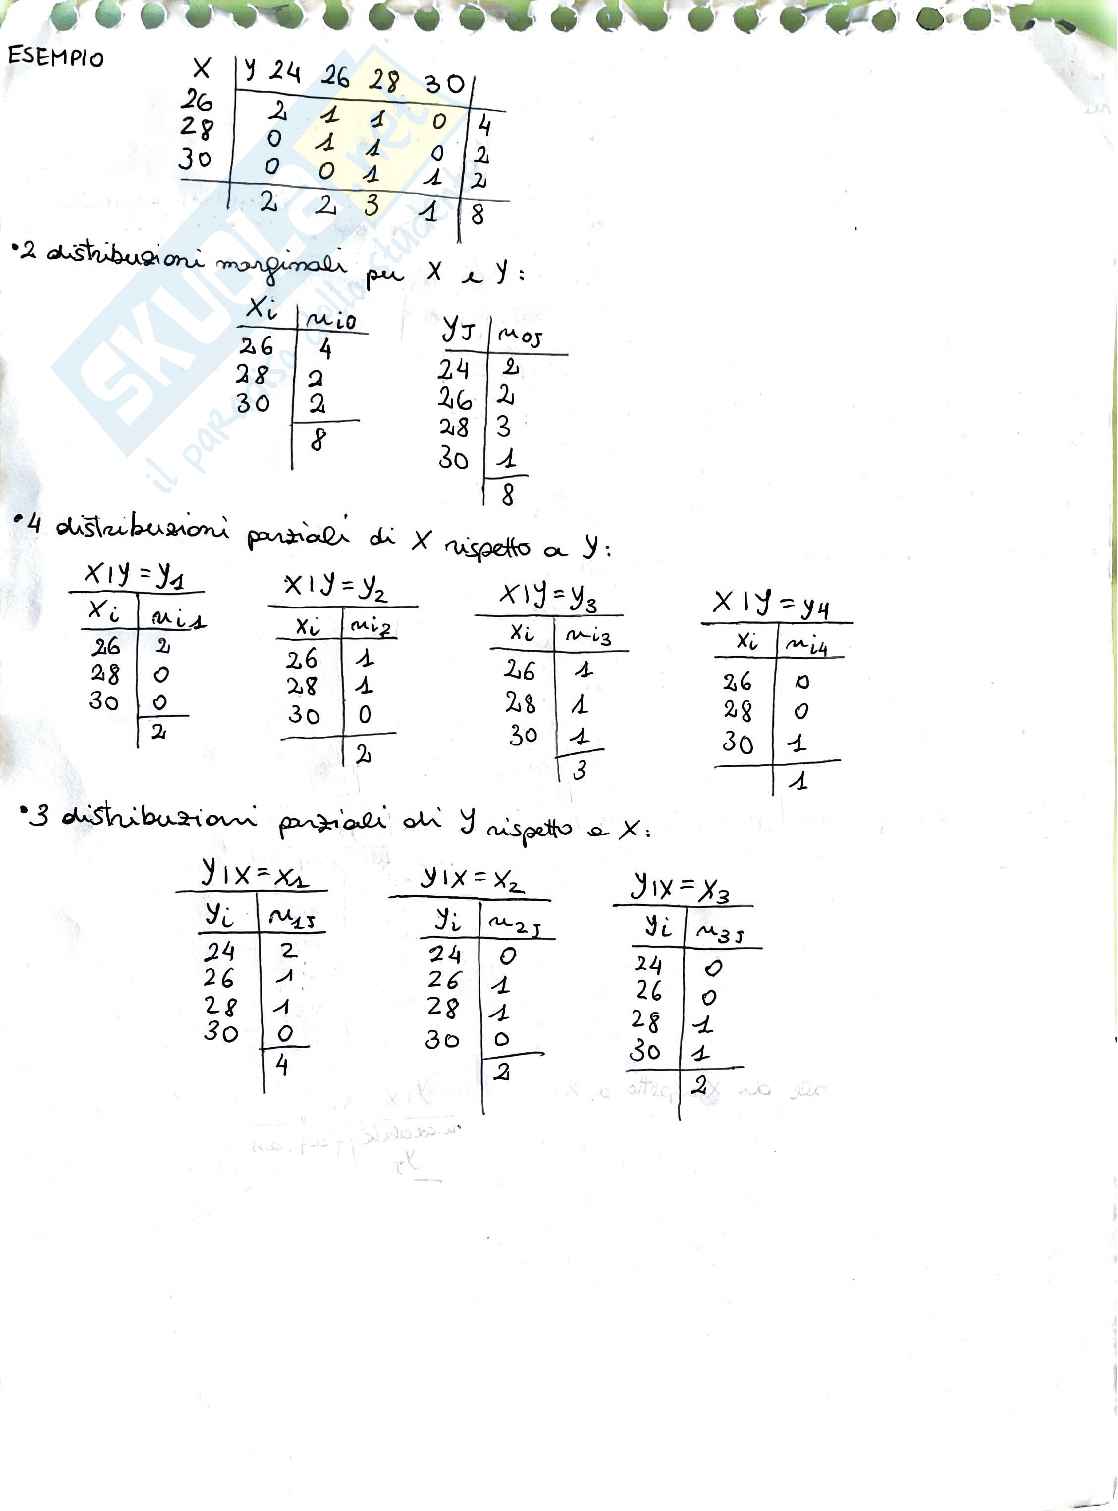 ESEMPIO
X | Y 24 26 28 30
26 | 2 1 1 0 | 4
28 | 0 1 1 0 | 2
30 | 0 0 1 1 | 2
2 2 3 1 | 8
•2 distribuzioni marginali per X e Y:
Xi | ni0
26 | 4
28 | 2
30 | 2
8
YJ | n0J
24 | 2
26 | 2
28 | 3
30 | 1
8
•4 distribuzioni parziali di X rispetto a Y:
X|Y=Y1
Xi | ni1
26 | 2
28 | 0
30 | 0
2
X|Y=Y2
Xi | ni2
26 | 1
28 | 1
30 | 0
2
X|Y=Y3
Xi | ni3
26 | 1
28 | 1
30 | 1
3
X|Y=Y4
Xi | ni4
26 | 0
28 | 0
30 | 1
1
•3 distribuzioni parziali di Y rispetto a X:
Y|X=X1
Yi | n1J
24 | 2
26 | 1
28 | 1
30 | 0
4
Y|X=X2
Yi | n2J
24 | 0
26 | 1
28 | 1
30 | 0
2
Y|X=X3
Yi | n3J
24 | 0
26 | 0
28 | 1
30 | 1
2
SKUOLA.net
il paradiso dello studente